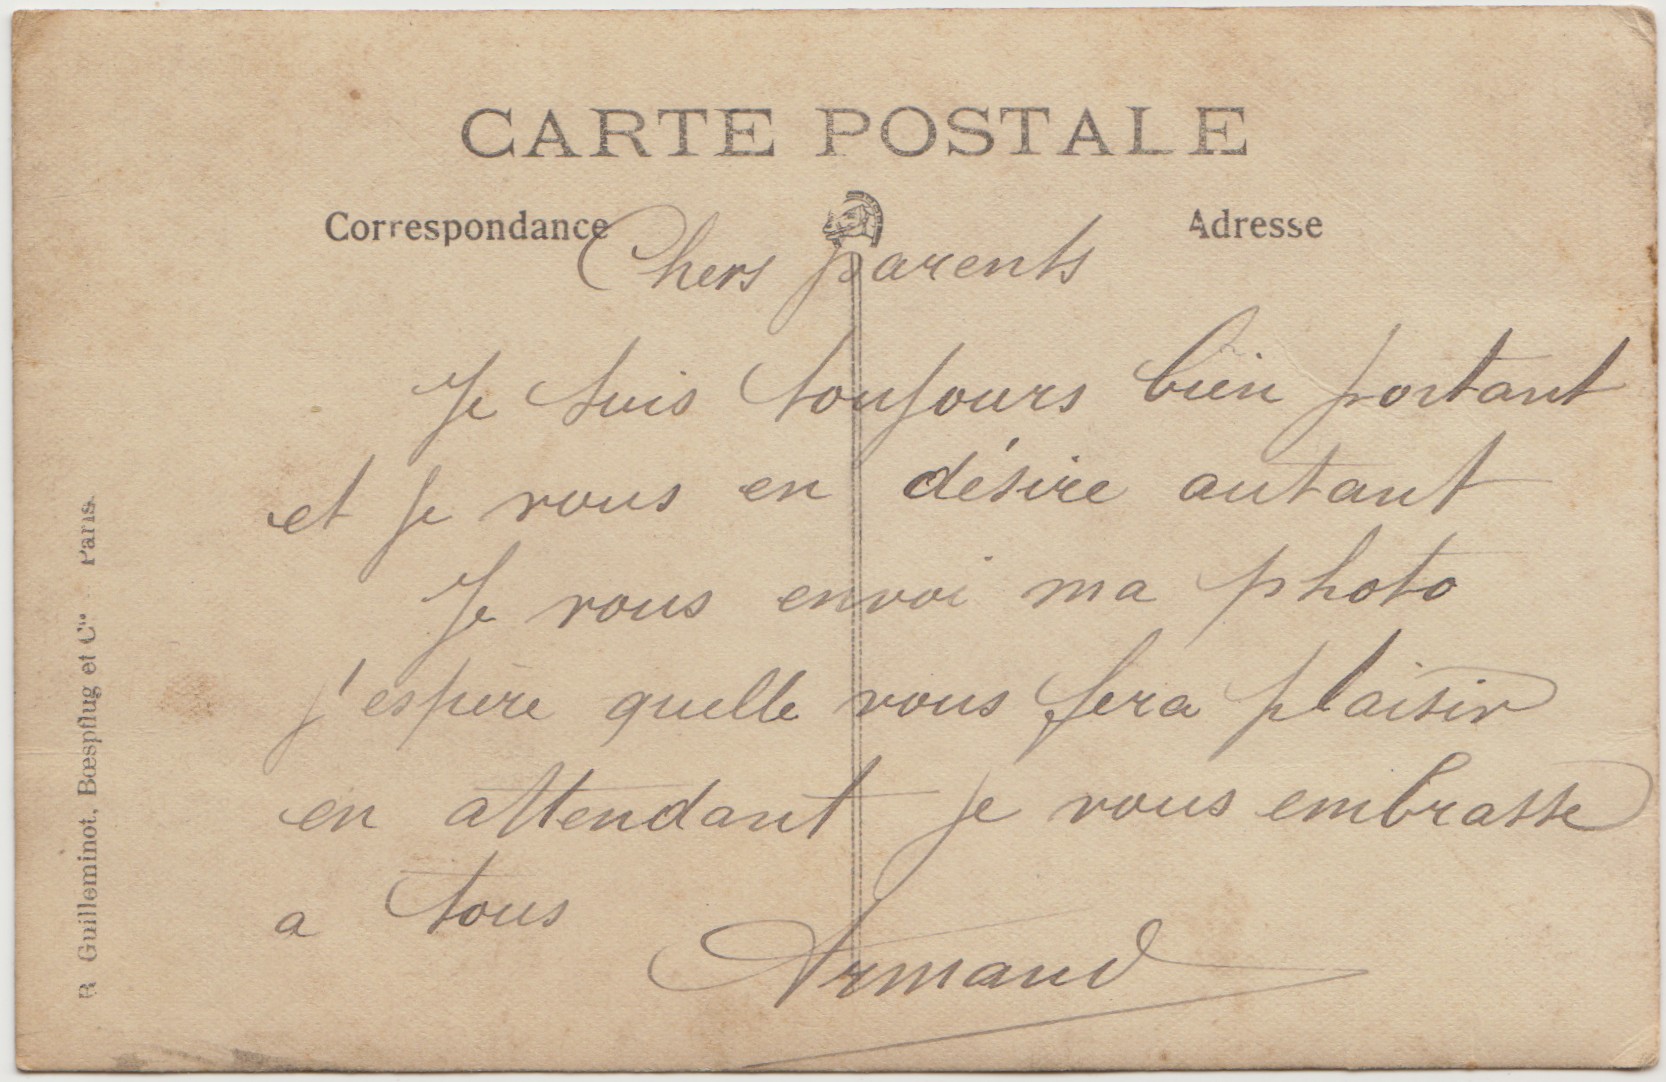 CARTE POSTALE
Correspondance
Adresse
Chers parents
Je suis toujours bien portant
et je vous en désire autant
Je vous envoi ma photo
j'espère quelle vous fera plaisir
en attendant je vous embrasse
a tous
Armand
R. Guilleminot, Bœspflug et Cie Paris